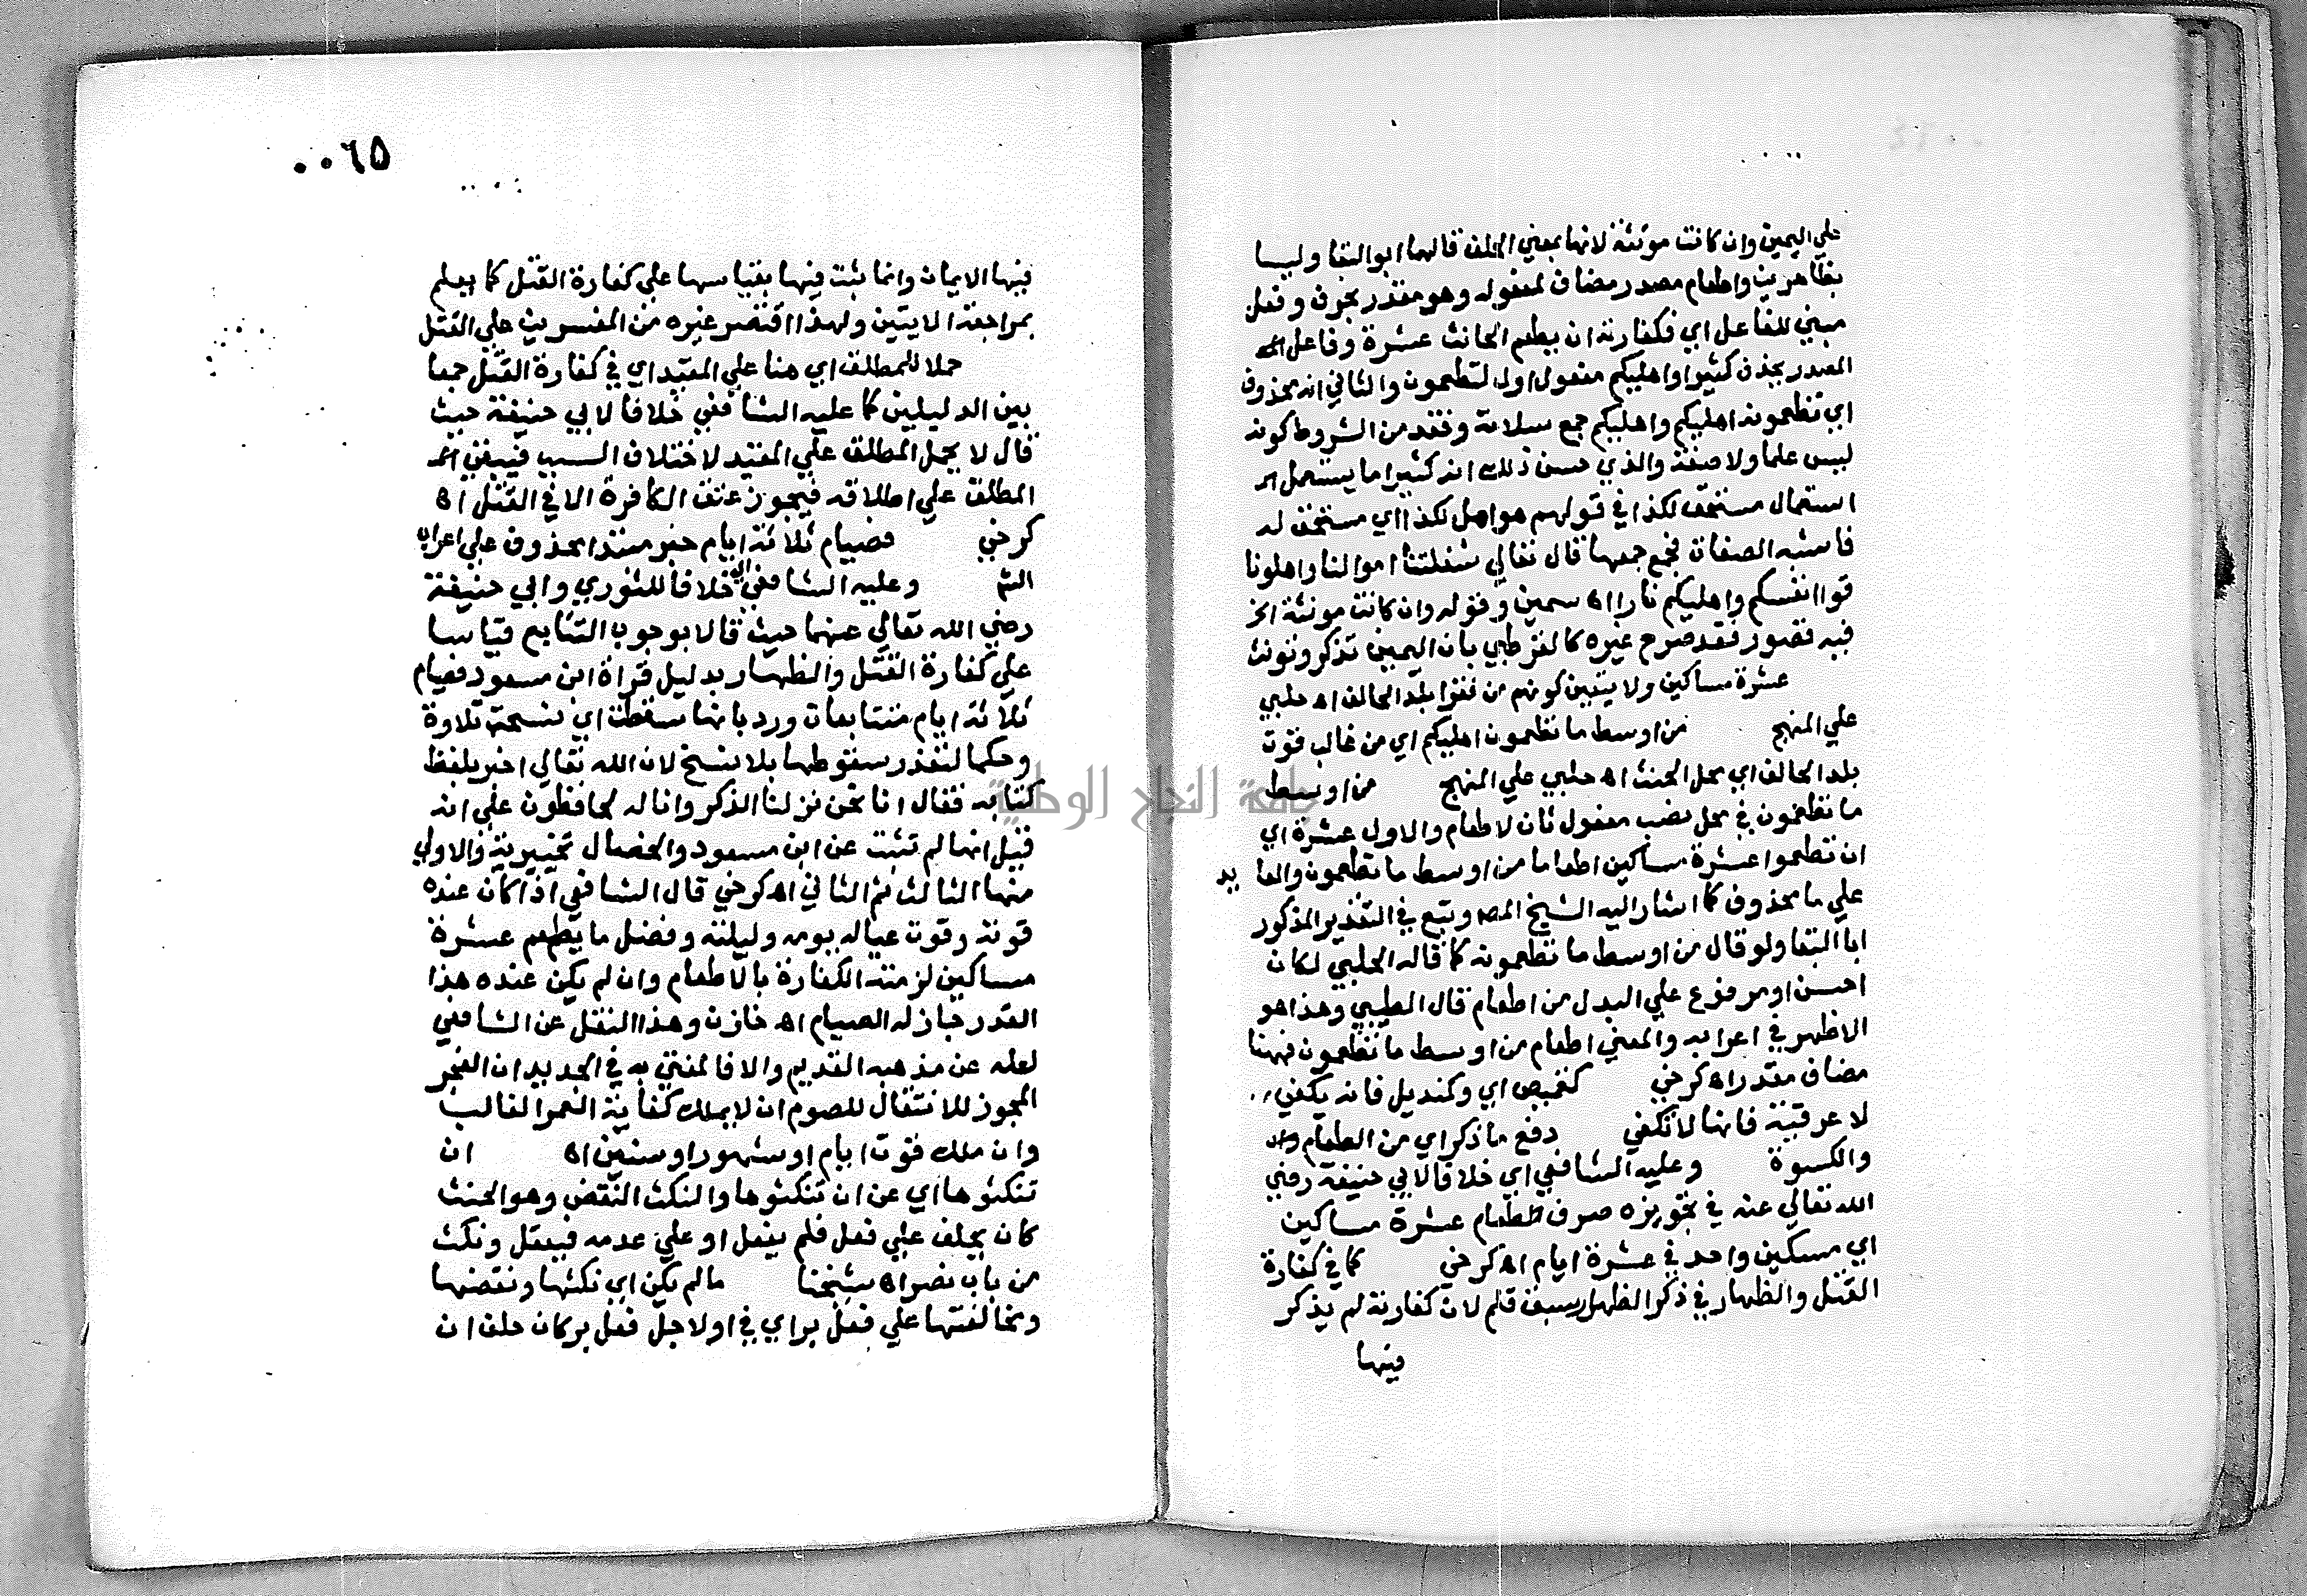 علي اليمين وان كانت مؤنثة لانها بمعني الحلف قالهما ابو البقا وليسا
بظاهرين واطعام مصدر مضاف لمفعوله وهو مقدر بحرف وفعل
مبني للفاعل اي فكفارته ان يطعم الحانث عشرة وفاعل
المصدر يحذف كثيرا واهليكم مفعول اول لتطعمون والثاني انه محذوف
اي تطعمونه اهليكم واهليكم جمع سلامة وفقد من الشروط كونه
ليس علما ولا صفة والذي حسن ذلك انه كثيرا ما يستعمل
استعمال مستحق لكذا في قولهم هو اهل لكذا اي مستحق له
فاشبه الصفات فجمع جمعها قال تعالي شغلتنا اموالنا واهلونا
قوا انفسكم واهليكم نارا اه سمين وقوله وان كانت مونثة الخ
فيه قصور فقد صرح غيره كالقرطبي بان اليمين تذكر وتونث
عشرة مساكين ولا يتعين كونهم من فقرا بلد الحالف اه حلبي
علي المنهج من اوسط ما تطعمون اهليكم اي من غالب قوت
بلد الحالف اي محل الحنث اه حلبي علي المنهج من اوسط
ما تطعمون في محل نصب مفعول ثان لاطعام والاول عشرة اي
ان تطعموا عشرة مساكين اطعاما من اوسط ما تطعمون والعا يد
علي ما محذوف كما اشار اليه الشيخ المص وتبع في التقدير المذكور
ابا البقا ولو قال من اوسط ما تطعمونه كما قاله الحلبي لكان
احسن او مرفوع علي البدل من اطعام قال الطيبي وهذا هو
الاظهر في اعرابه والمعني اطعام من اوسط ما تطعمون فهنا
مضاف مقدر اه كرخي كقميص اي وكمنديل فانه يكفي
لا عرقية فانها لا تكفي دفع ما ذكر اي من الطعام
والكسوة وعليه الشافعي اي خلافا لابي حنيفة رضي
الله تعالي عنه في تجويزه صرف طعام عشرة مساكين
اي مسكين واحد في عشرة ايام اه كرخي كما في كفارة
القتل والظهار في ذكر الظهار سبق قلم لان كفارته لم يذكر
فيها
٠٠٦٥
فيها الايمان وانما ثبت فيها بقياسها علي كفارة القتل كما يعلم
بمراجعة الايتين ولهذا اقتصر غيره من المفسرين علي القتل
حملا للمطلق اي هنا علي المقيد اي في كفارة القتل جمعا
بين الدليلين كما عليه الشافعي خلافا لابي حنيفة حيث
قال لا يحمل المطلق علي المقيد لاختلاف السبب فيبقي
المطلق علي اطلاقه فيجوز عتق الكافرة الا في القتل اه
كرخي فصيام ثلاثة ايام خبر مبتدا محذوف علي اعراب
الشم وعليه الشافعي اي خلافا للثوري وابي حنيفة
رضي الله تعالي عنهما حيث قالا بوجوب التتابع قياسا
علي كفارة القتل والظهار بدليل قراة ابن مسعود فصيام
ثلاثة ايام متتابعات ورد بانها سقطت اي نسخت تلاوة
وحكما لتعذر سقوطها بلا نسخ لان الله تعالي اخبر بلفظ
كتابه فقال انا نحن نزلنا الذكر وانا له لحافظون علي انه
قيل انها لم تثبت عن ابن مسعود والخصال تخييرية والاولي
منها الثالث ثم الثاني اه كرخي قال الشافعي اذا كان عنده
قوته وقوت عياله يومه وليلته وفضل ما يطعم عشرة
مساكين لزمته الكفارة بالاطعام وان لم يكن عنده هذا
القدر جاز له الصيام اه خازن وهذا النقل عن الشافعي
لعله عن مذهبه القديم والا فالمفتي به في الجديد ان العجز
المجوز للانتقال للصوم ان لا يملك كفاية العمر الغالب
وان ملك قوت ايام او شهور او سنين اه ان
تنكثوها اي عن ان تنكثوها والنكث النقض وهو الحنث
كان يحلف علي فعل فلم يفعل او علي عدمه فيفعل ونكث
من باب نصر اه شيخنا ما لم يكن اي نكثها ونقضها
ومخالفتها علي فعل بر اي في او لاجل فعل بر كان حلف ان
جامعة النجاح الوطنية